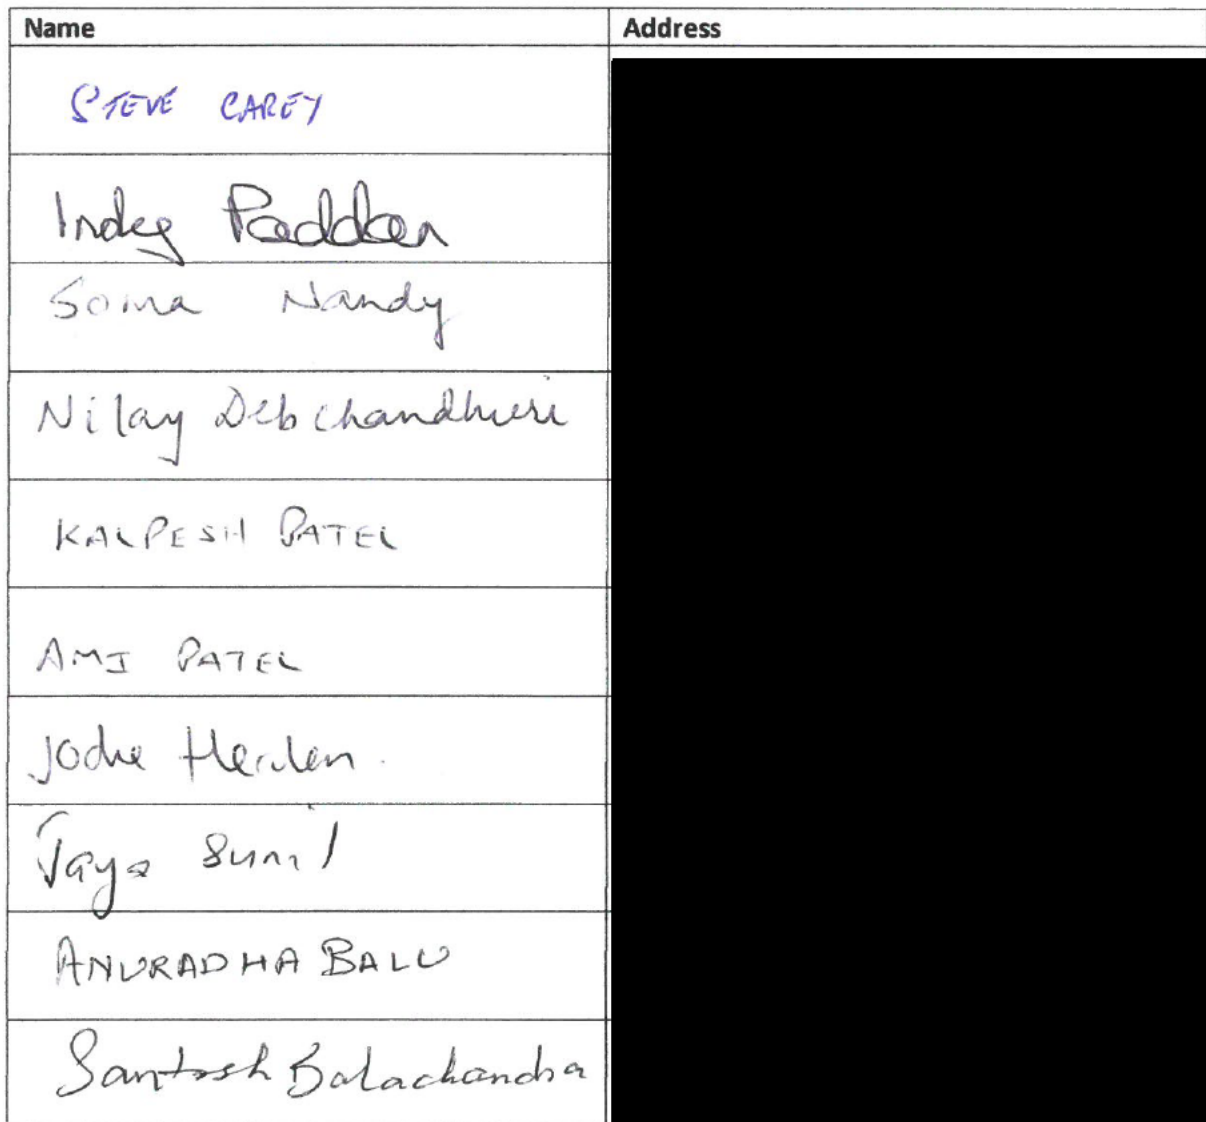 Name Address
STEVE CAREY
Paddan
Soma Nandy
Nilay Debchandhuri
KALPESH PATEL
AMI PATEL
Jodie
Jaya Sunil
ANURADHA BALU
Santosh Balachandra